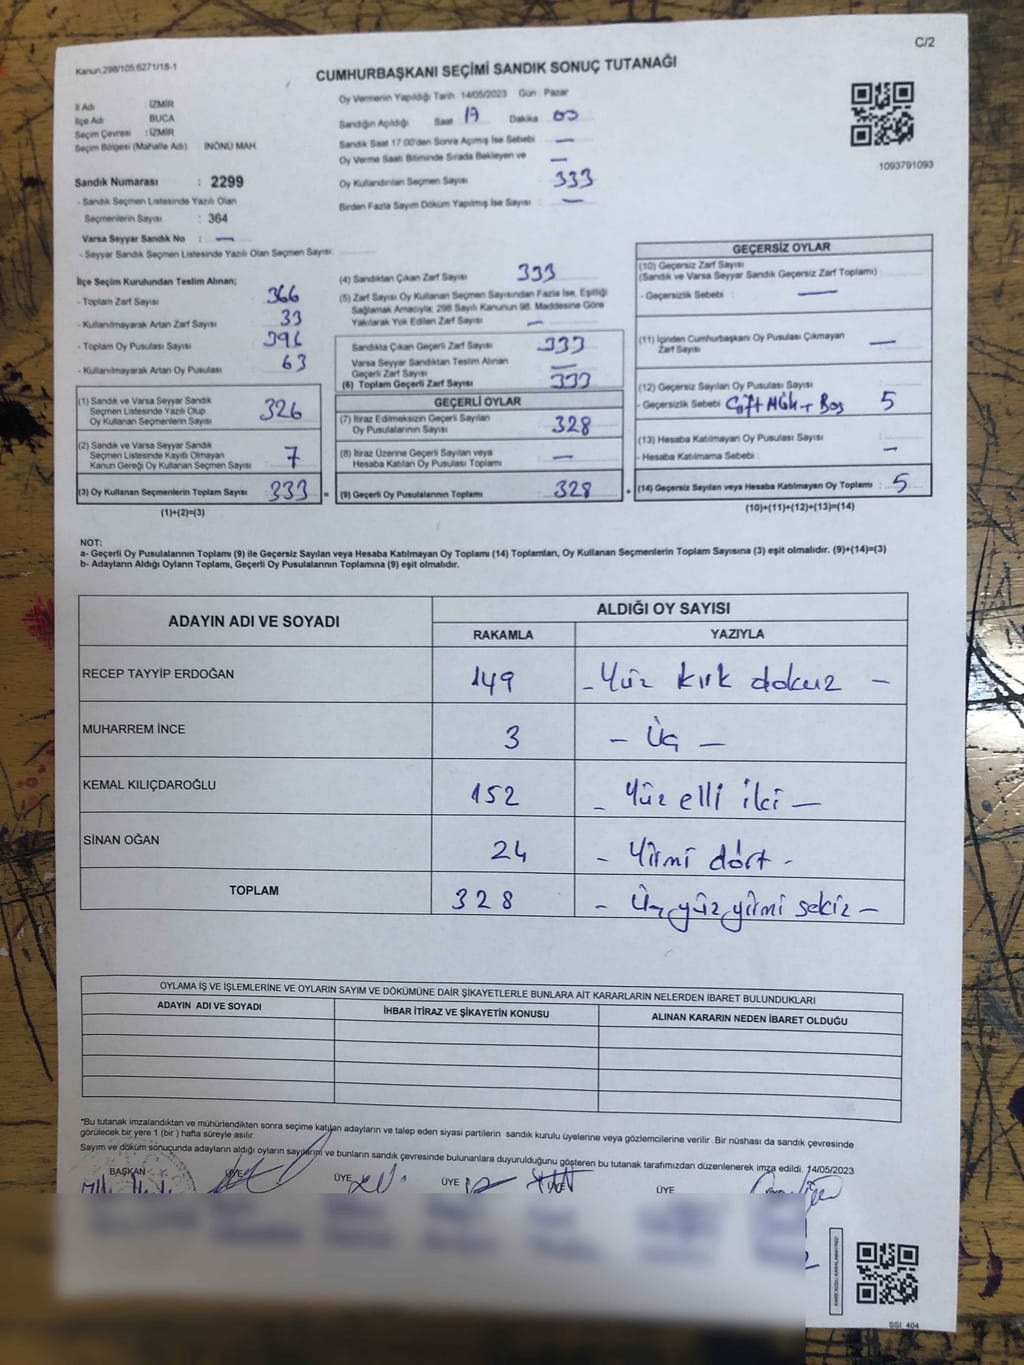 C/2
Kanun:298/105.6271/18-1
CUMHURBAŞKANI SEÇİMİ SANDIK SONUÇ TUTANAĞI
İl Adı İZMİR
İlçe Adı BUCA
Seçim Çevresi : İZMİR
Seçim Bölgesi (Mahalle Adı) İNÖNÜ MAH
Sandık Numarası : 2299
- Sandık Seçmen Listesinde Yazılı Olan
Seçmenlerin Sayısı : 364
Varsa Seyyar Sandık No : —
- Seyyar Sandık Seçmen Listesinde Yazılı Olan Seçmen Sayısı:
Oy Vermenin Yapıldığı Tarih :14/05/2023 Gün : Pazar
Sandığın Açıldığı Saat 17 Dakika 00
Sandık Saat 17:00'den Sonra Açılmış İse Sebebi —
Oy Verme Saati Bitiminde Sırada Bekleyen ve —
Oy Kullandırılan Seçmen Sayısı 333
Birden Fazla Sayım Döküm Yapılmış İse Sayısı : —
1093791093
İlçe Seçim Kurulundan Teslim Alınan;
- Toplam Zarf Sayısı 366
- Kullanılmayarak Artan Zarf Sayısı 33
- Toplam Oy Pusulası Sayısı 396
- Kullanılmayarak Artan Oy Pusulası 63
(1) Sandık ve Varsa Seyyar Sandık
Seçmen Listesinde Yazılı Olup
Oy Kullanan Seçmenlerin Sayısı 326
(2) Sandık ve Varsa Seyyar Sandık
Seçmen Listesinde Kayıtlı Olmayan
Kanun Gereği Oy Kullanan Seçmen Sayısı 7
(3) Oy Kullanan Seçmenlerin Toplam Sayısı : 333 =
(1)+(2)=(3)
(4) Sandıktan Çıkan Zarf Sayısı 333
(5) Zarf Sayısı Oy Kullanan Seçmen Sayısından Fazla İse, Eşitliği
Sağlamak Amacıyla; 298 Sayılı Kanunun 98. Maddesine Göre
Yakılarak Yok Edilen Zarf Sayısı —
Sandıkta Çıkan Geçerli Zarf Sayısı 333
Varsa Seyyar Sandıktan Teslim Alınan
Geçerli Zarf Sayısı —
(6) Toplam Geçerli Zarf Sayısı 333
GEÇERLİ OYLAR
(7) İtiraz Edilmeksizin Geçerli Sayılan
Oy Pusulalarının Sayısı 328
(8) İtiraz Üzerine Geçerli Sayılan veya
Hesaba Katılan Oy Pusulası Toplamı —
(9) Geçerli Oy Pusulalarının Toplamı 328 +
GEÇERSİZ OYLAR
(10) Geçersiz Zarf Sayısı
(Sandık ve Varsa Seyyar Sandık Geçersiz Zarf Toplamı)
- Geçersizlik Sebebi : —
(11) İçinden Cumhurbaşkanı Oy Pusulası Çıkmayan
Zarf Sayısı —
(12) Geçersiz Sayılan Oy Pusulası Sayısı
- Geçersizlik Sebebi Çift Müh + Boş 5
(13) Hesaba Katılmayan Oy Pusulası Sayısı
- Hesaba Katılmama Sebebi : —
(14) Geçersiz Sayılan veya Hesaba Katılmayan Oy Toplamı : 5
(10)+(11)+(12)+(13)=(14)
NOT:
a- Geçerli Oy Pusulalarının Toplamı (9) ile Geçersiz Sayılan veya Hesaba Katılmayan Oy Toplamı (14) Toplamları, Oy Kullanan Seçmenlerin Toplam Sayısına (3) eşit olmalıdır. (9)+(14)=(3)
b- Adayların Aldığı Oyların Toplamı, Geçerli Oy Pusulalarının Toplamına (9) eşit olmalıdır.
ADAYIN ADI VE SOYADI ALDIĞI OY SAYISI
RAKAMLA YAZIYLA
RECEP TAYYİP ERDOĞAN 149 - Yüz kırk dokuz -
MUHARREM İNCE 3 - Üç -
KEMAL KILIÇDAROĞLU 152 - Yüz elli iki -
SİNAN OĞAN 24 - Yirmi dört -
TOPLAM 328 - Üç yüz yirmi sekiz -
OYLAMA İŞ VE İŞLEMLERİNE VE OYLARIN SAYIM VE DÖKÜMÜNE DAİR ŞİKAYETLERLE BUNLARA AİT KARARLARIN NELERDEN İBARET BULUNDUKLARI
ADAYIN ADI VE SOYADI İHBAR İTİRAZ VE ŞİKAYETİN KONUSU ALINAN KARARIN NEDEN İBARET OLDUĞU
*Bu tutanak imzalandıktan ve mühürlendikten sonra seçime katılan adayların ve talep eden siyasi partilerin sandık kurulu üyelerine veya gözlemcilerine verilir .Bir nüshası da sandık çevresinde
görülecek bir yere 1 (bir ) hafta süreyle asılır.
Sayım ve döküm sonucunda adayların aldığı oyların sayılarını ve bunların sandık çevresinde bulunanlara duyurulduğunu gösteren bu tutanak tarafımızdan düzenlenerek imza edildi. 14/05/2023
BAŞKAN ÜYE ÜYE ÜYE ÜYE ÜYE
SSI_404